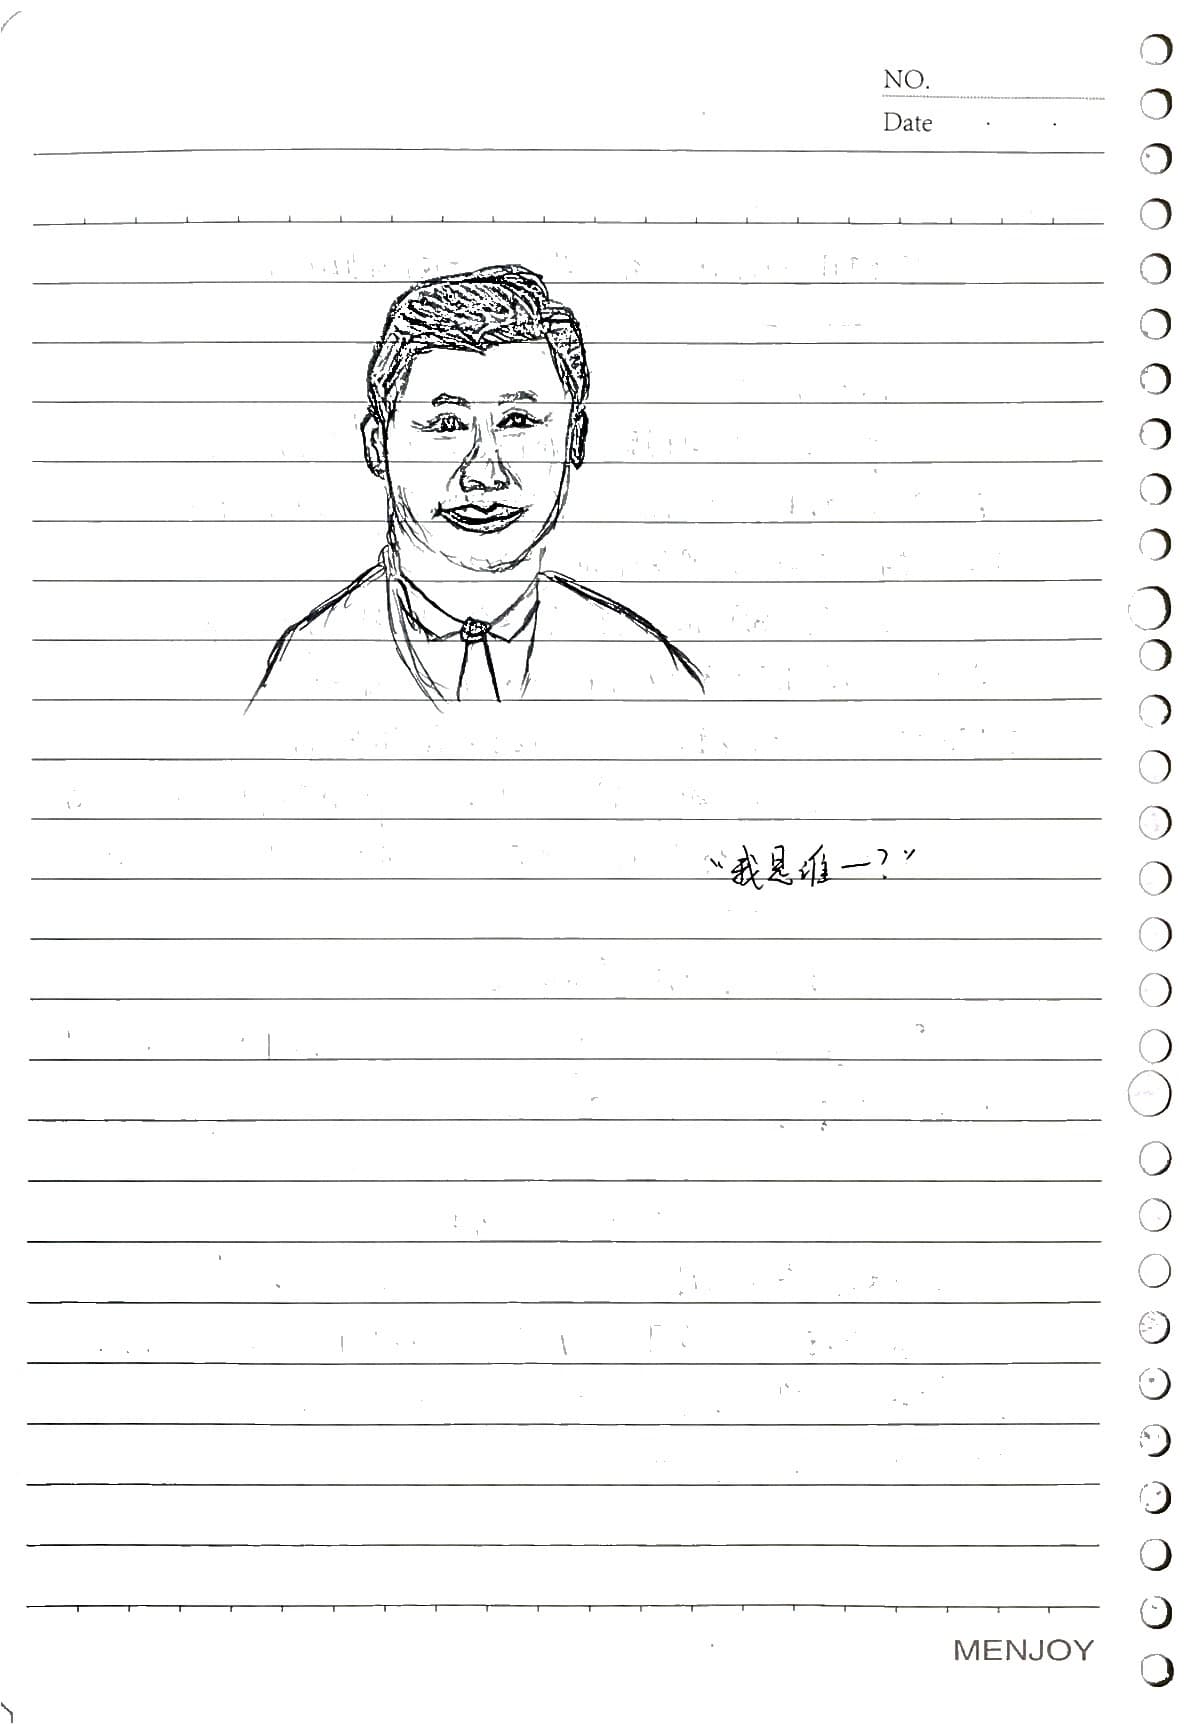 NO.
Date
“我是谁—?”
MENJOY